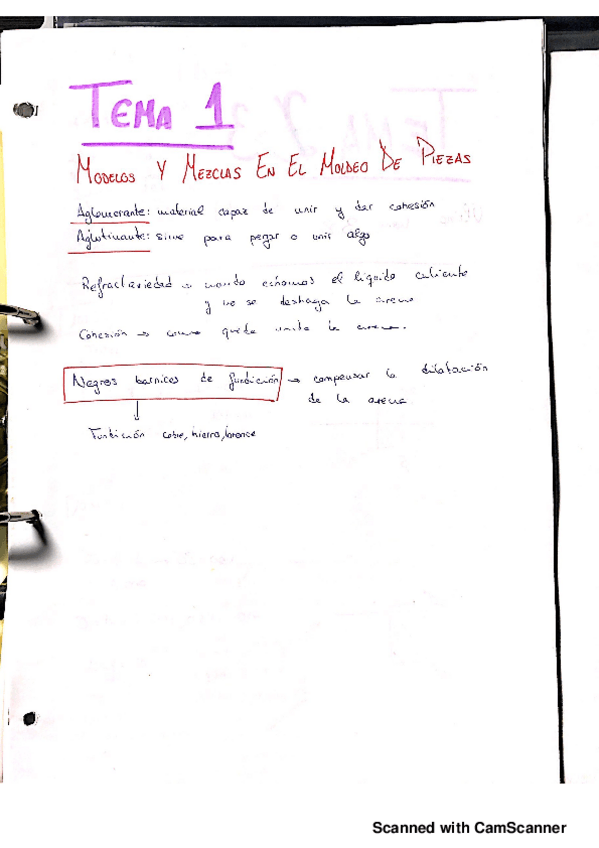 TEMA 1
MODELOS Y MEZCLAS EN EL MOLDEO DE PIEZAS
Aglomerante: material capaz de unir y dar cohesión
Aglutinante: sirve para pegar o unir algo
Refractariedad → cuando echamos el líquido caliente
y no se deshaga la arena
Cohesión → como queda unida la arena.
Negros barnices de fundición → compensar la dilatación
de la arena
Fundición cobre, hierro, bronce
Scanned with CamScanner